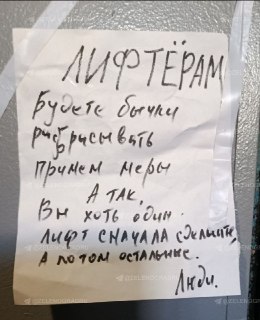 ЛИФТЁРАМ
Будете бычки
разбрасывать
примем меры
А так,
Вы хоть один
лифт сначала сделайте,
а потом остальные.
Люди.
@ZELENOGRADRU